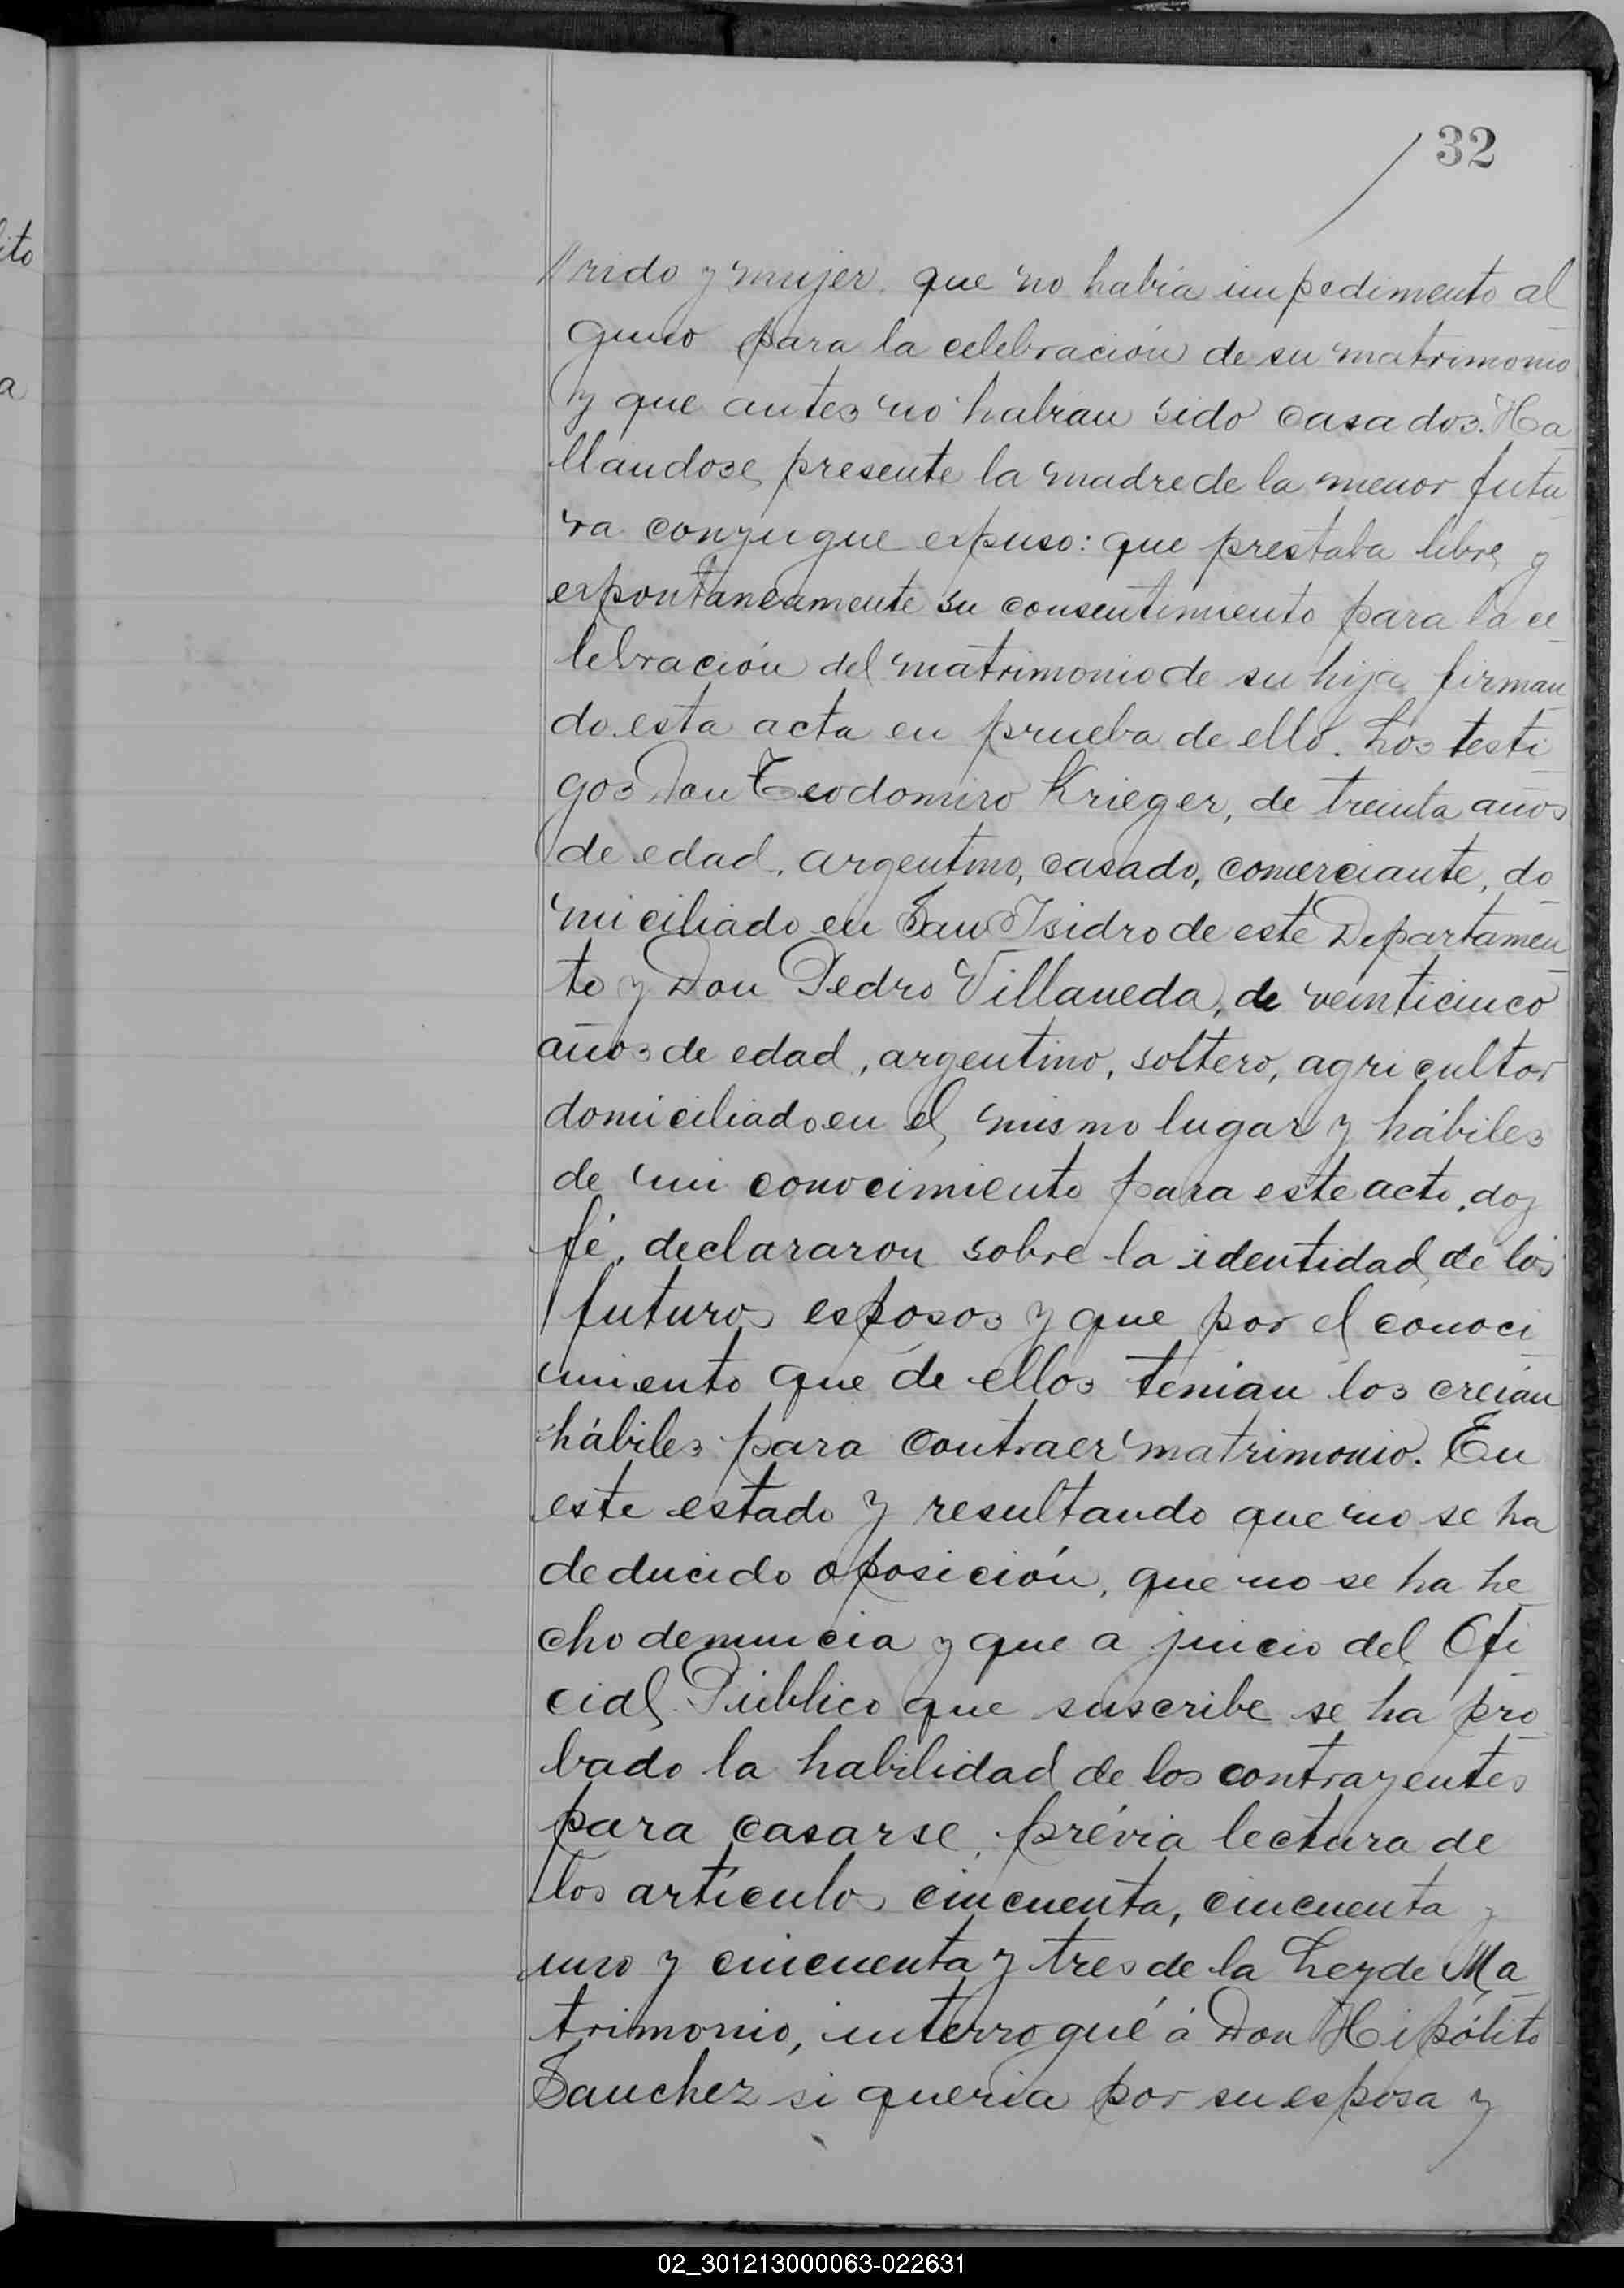 32
ito
a
rido y mujer, que no habia impedimento al
guno para la celebración de su matrimonio
y que antes no habian sido casados. Ha
llandose presente la madre de la menor futu
ra conyugue expuso: que prestaba libre y
expontaneamente su consentimiento para la ce
lebración del matrimonio de su hija firman
do esta acta en prueba de ello. Los testi
gos Don Teodomiro Krieger, de treinta años
de edad, argentino, casado, comerciante, do
miciliado en San Isidro de este Departamen
to y Don Pedro Villaneda, de veinticinco
años de edad, argentino, soltero, agricultor
domiciliado en el mismo lugar y hábiles
de mi conocimiento para este acto, doy
fé, declararon sobre la identidad de los
futuros esposos y que por el conoci
miento que de ellos tenian los creian
hábiles para contraer matrimonio. En
este estado y resultando que no se ha
deducido oposición, que no se ha he
cho denuncia y que a juicio del Ofi
cial Público que suscribe se ha pro
bado la habilidad de los contrayentes
para casarse, prévia lectura de
los artículos cincuenta, cincuenta y
uno y cincuenta y tres de la Ley de Ma
trimonio, interrogué á Don Hipólito
Sanchez si queria por su esposa y
02_301213000063-022631